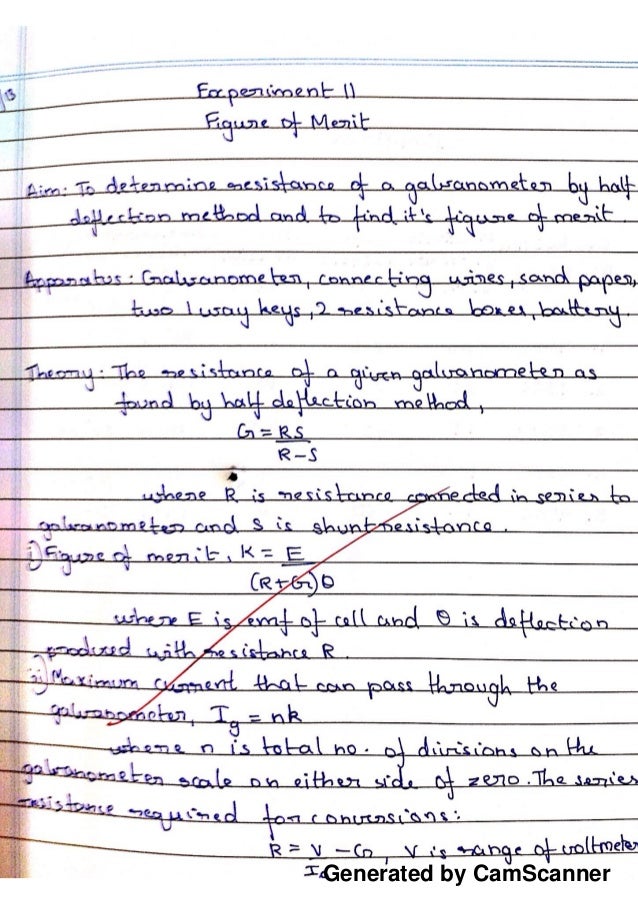 13
Experiment 11
Figure of Merit
Aim: To determine resistance of a galvanometer by half
deflection method and to find it's figure of merit.
Apparatus: Galvanometer, connecting wires, sand paper,
two 1 way keys, 2 resistance boxes, battery.
Theory: The resistance of a given galvanometer as
found by half deflection method,
G = RS
R-S
where R is resistance connected in series to
galvanometer and S is shunt resistance.
i) Figure of merit, K = E
(R+G)θ
where E is emf of cell and θ is deflection
produced with resistance R.
ii) Maximum current that can pass through the
galvanometer, Ig = nk
where n is total no. of divisions on the
galvanometer scale on either side of zero. The series
resistance required for conversions:
R = V - G, V is range of voltmeter
Generated by CamScanner